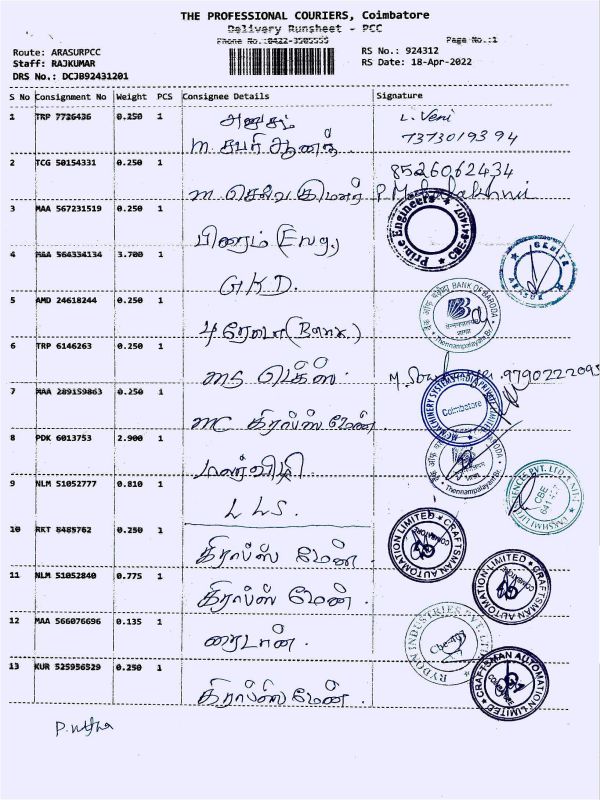 THE PROFESSIONAL COURIERS, Coimbatore
Delivery Runsheet - PCC
Phone No.:0422-3505555 Page No.:1
Route: ARASURPCC RS No.: 924312
Staff: RAJKUMAR RS Date: 18-Apr-2022
DRS No.: DCJB92431201
S No Consignment No Weight PCS Consignee Details Signature
1 TRP 7726436 0.250 1 L. Veni
7373019394
2 TCG 50154331 0.250 1 8526062434
3 MAA 567231519 0.250 1 பிரைம் (Eng.)
Prime Engineers CBE-641407
4 MAA 564334134 3.700 1 GKD.
IGNITE ARASUR
5 AMD 24618244 0.250 1 (Bank.)
BANK OF BARODA Thennampalayam Br.
6 TRP 6146263 0.250 1 MS டெக்ஸ். 9790222095
7 MAA 289159863 0.250 1 MC கிராப்ஸ் மேன்.
Coimbatore
8 PDK 6013753 2.900 1
Thennampalayam Br.
9 NLM 51052777 0.810 1 LLS.
10 RKT 8485762 0.250 1 கிராப்ஸ் மேன்.
CRAFTSMAN AUTOMATION LIMITED
11 NLM 51052840 0.775 1 கிராப்ஸ் மேன்.
CRAFTSMAN AUTOMATION LIMITED
12 MAA 566076696 0.135 1 ரைடான்.
RYDON INDUSTRIES PVT LTD
13 KUR 525956529 0.250 1 கிராப்ஸ் மேன்.
CRAFTSMAN AUTOMATION LIMITED